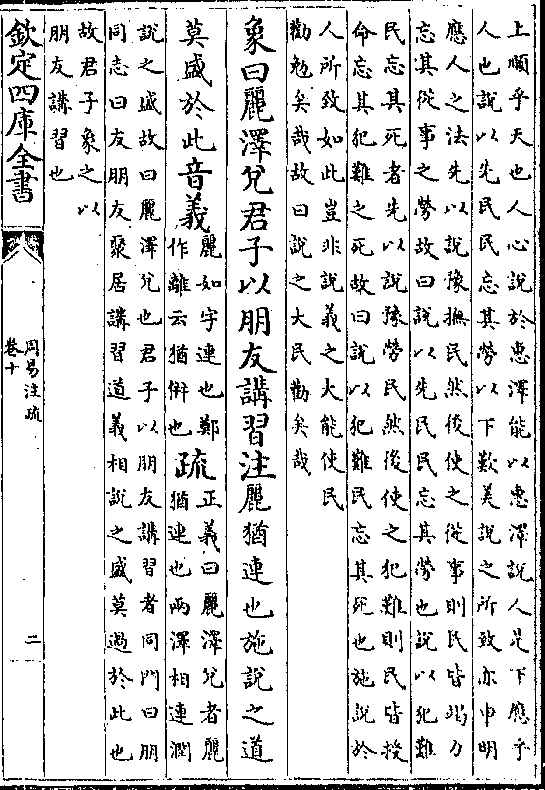 上順乎天也人心說於惠澤能以惠澤說人是下應乎
人也說以先民民忘其勞以下歎美說之所致亦申明
應人之法先以說豫撫民然後使之從事則民皆竭力
忘其從事之勞故曰說以先民民忘其勞也說以犯難
民忘其死者先以說豫勞民然後使之犯難則民皆授
命忘其犯難之死故曰說以犯難民忘其死也施說於
人所致如此豈非說義之大能使民
勸勉矣哉故曰說之大民勸矣哉
象曰麗澤兌君子以朋友講習注麗猶連也施說之道
莫盛於此音義麗如字連也鄭作離云猶併也疏正義曰麗澤兌者麗猶連也兩澤相連潤
說之盛故曰麗澤兌也君子以朋友講習者同門曰朋
同志曰友朋友聚居講習道義相說之盛莫過於此也
故君子象之以
朋友講習也
欽定四庫全書
周易注疏
卷十
二